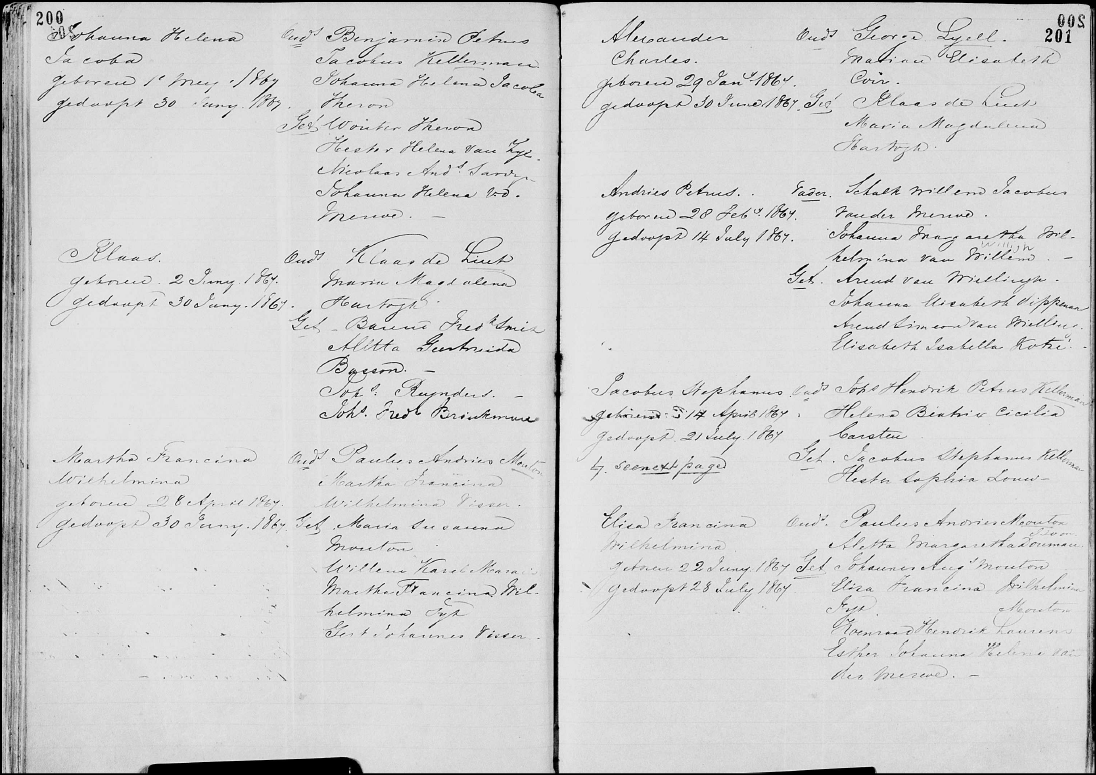 200
Johanna Helena
Jacoba
geboren 1e Mey 1867
gedoopt 30 Juny 1867.
Oudrs Benjamin Petrus
Jacobus Kellerman
Johanna Helena Jacoba
Theron
Get. Wouter Theron
Hester Helena van Zyl.
Nicolaas
Johanna Helena v.d.
Merwe. —
Klaas.
geboren 2 Juny 1867.
gedoopt 30 Juny 1867.
Ouds Klaas de Lint
Maria Magdalena
Hartogh
Get. Fredk Smit
Aletta
Basson. —
Johs. Ruynders. —
Johs. Fredk Brinkman
Martha Francina
Wilhelmina
geboren 28 April 1867.
gedoopt 30 Juny. 1867
Ouds Paulus Andries Mouton
Martha Francina
Wilhelmina Visser.
Get. Maria Susanna
Mouton
Willem Karel
Martha Francina Wil-
helmina Fyt
Gert Johannes Visser.
201
Alexander
Charles.
geboren 29 Jany 1867.
gedoopt 30 June 1867.
Ouds George Lyell.
Marian Elisabeth
Get. Klaas de Lint
Maria Magdalena
Hartogh.
Andries Petrus.
geboren 28 Feby. 1867.
gedoopt 14 July 1867.
Vader. Schalk Willem Jacobus
van der Merwe.
Johanna Margaretha Wil-
helmina van Willem. —
Get. Arend van Wielligh.
Johanna Elisabeth Dippenaar
Arend Simeon van Wielligh.
Elisabeth Isabella Kotzé. —
Jacobus Stephanus
geboren 14 April 1867
gedoopt 21 July 1867
see next page
Ouds Johs Hendrik Petrus Kellerman
Helena Beatrix Cicilia
Carsten
Get. Jacobus Stephanus Kellerman
Hester Sophia Louw
Elisa Francina
Wilhelmina
geboren 22 Juny 1867
gedoopt 28 July 1867.
Ouds. Paulus Andries Mouton
Aletta Margaretha Louman
Get Johannes Augs Mouton
Elisa Francina Wilhelmina
Fyt. Mouton
Koenraad Hendrik Laurens
Esther Johanna Helena van
der Merwe. —